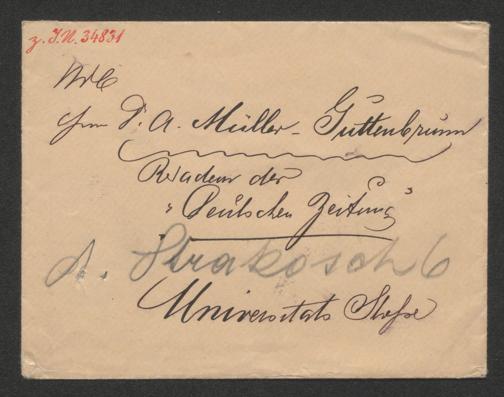 z. I.N. 34831
Herrn Dr. A. Müller-Guttenbrunn
Redacteur der
"Deutschen Zeitung"
A. Strakosch 6
Universitäts Straße